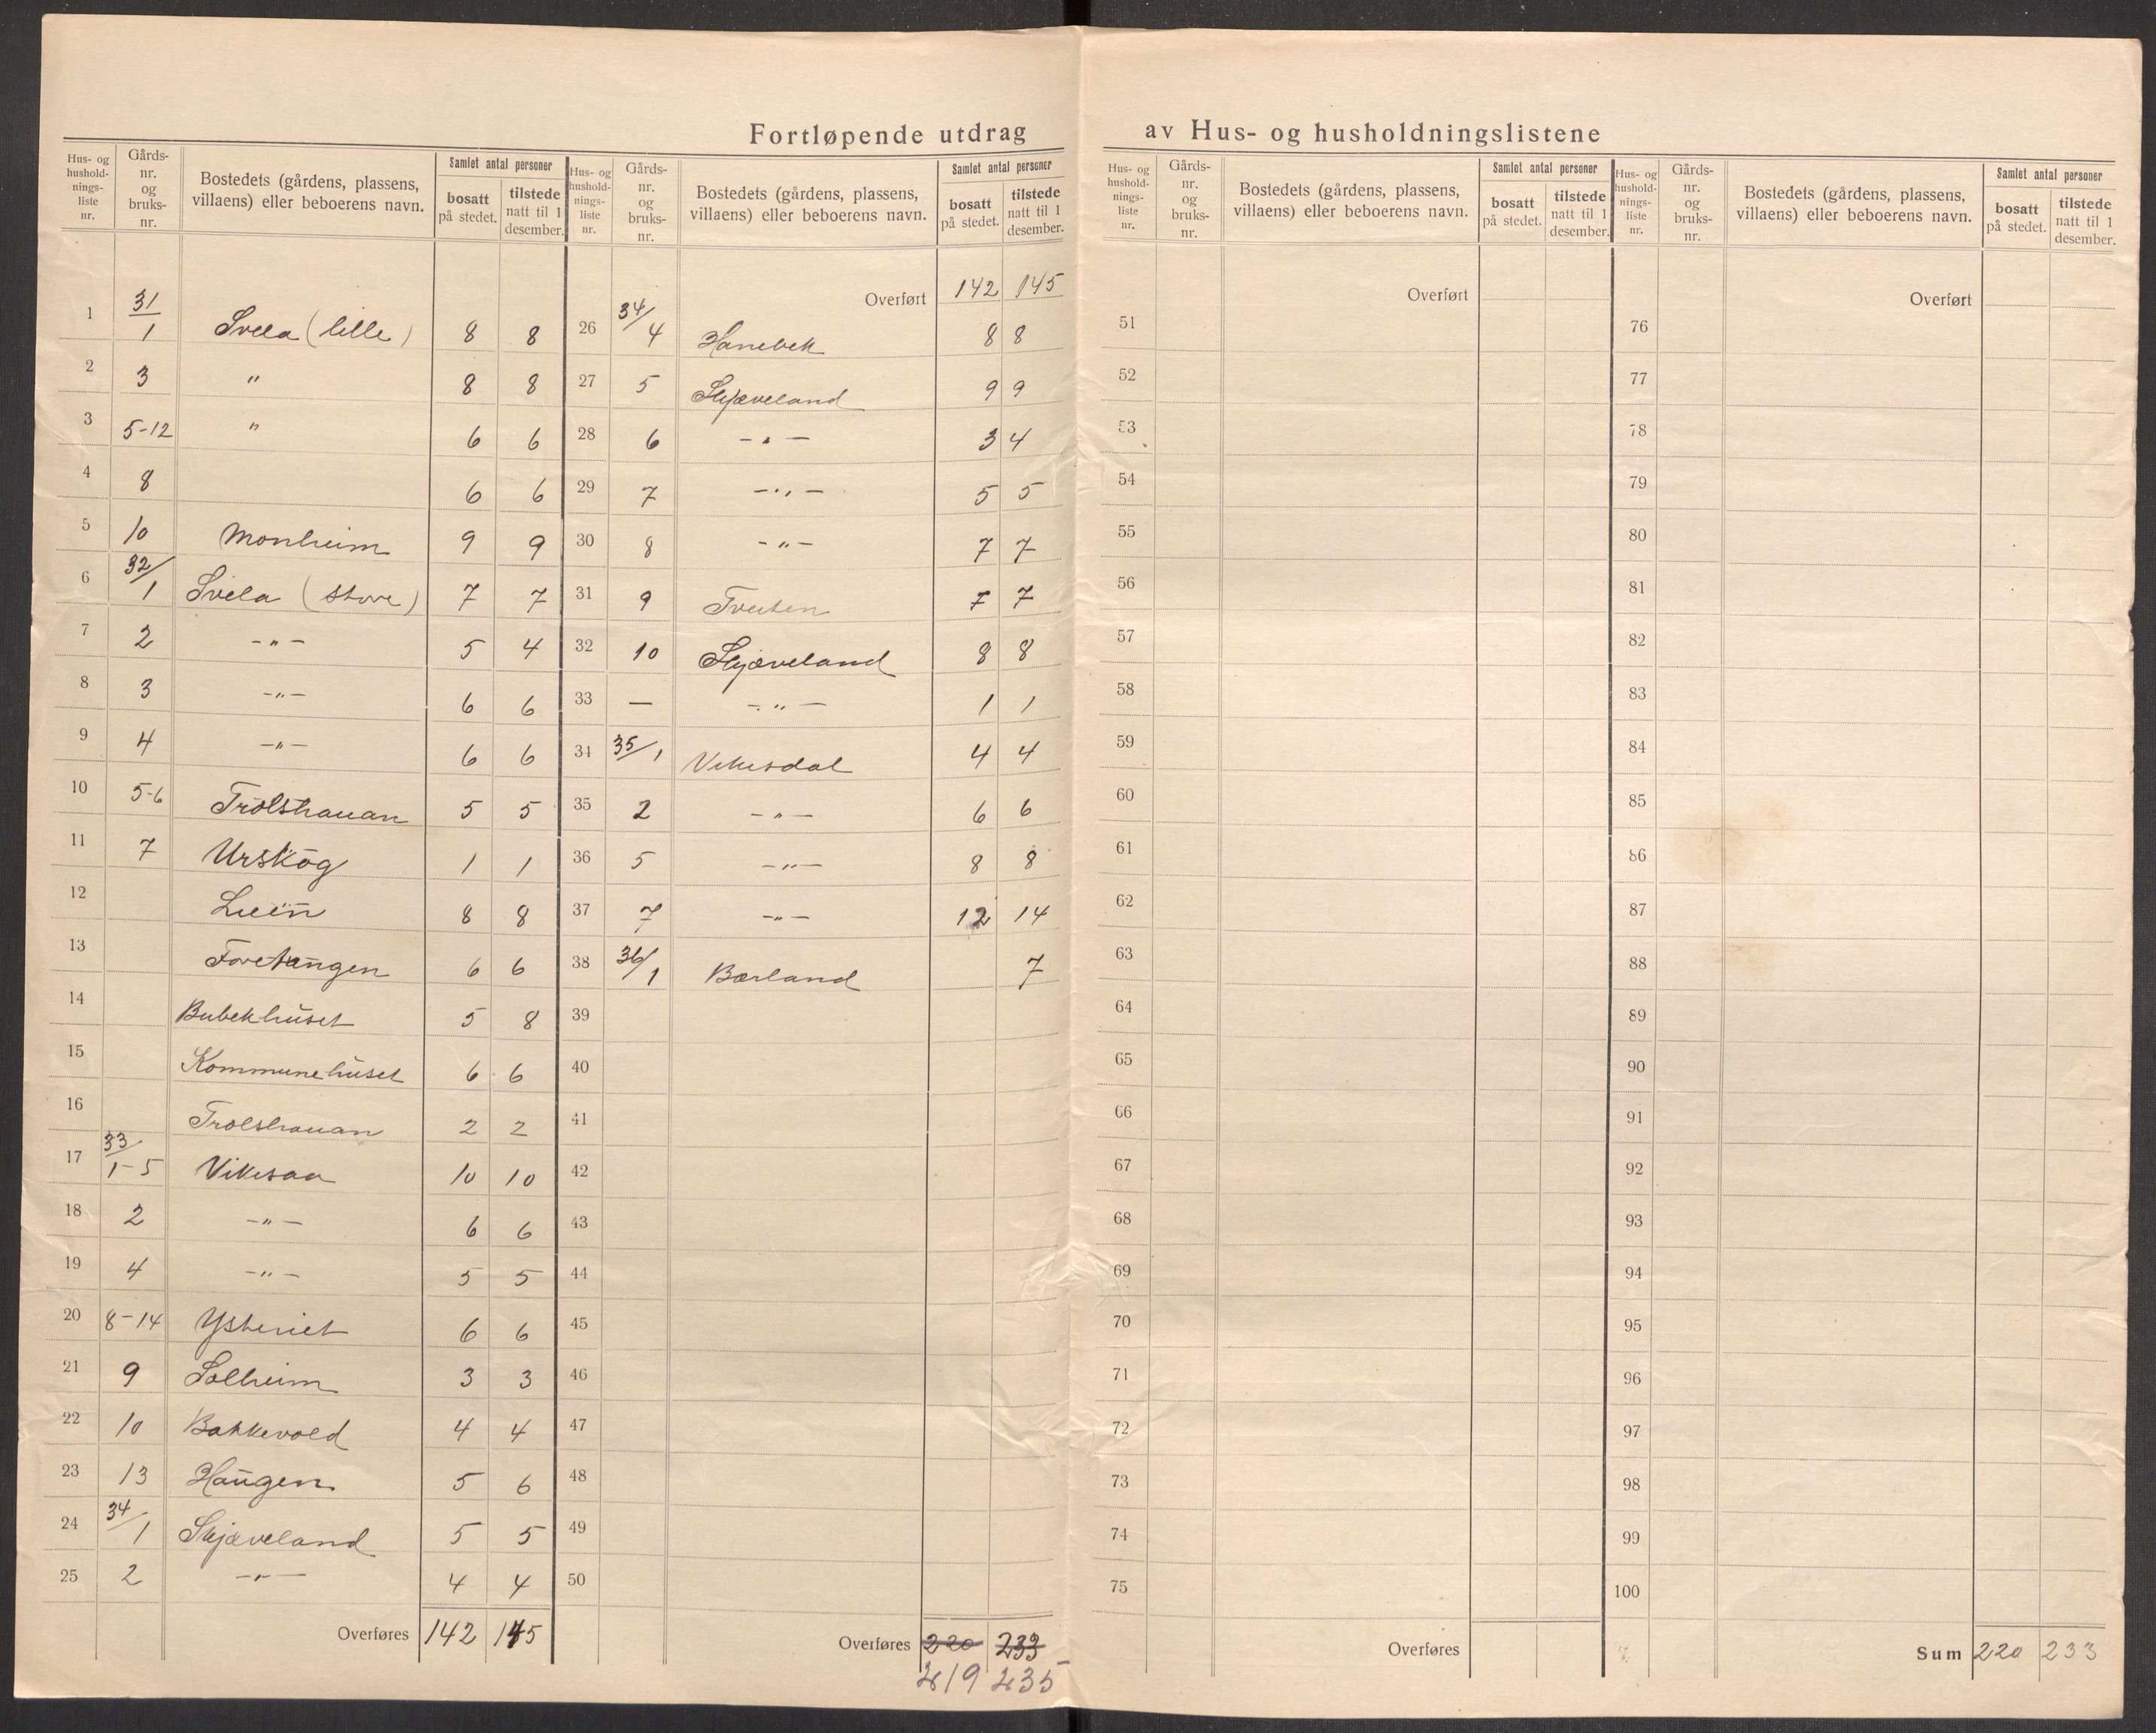 Fortløpende utdrag av Hus- og husholdningslistene
Hus- og hushold- nings- liste nr. Gårds- nr. og bruks- nr. Bostedets (gårdens, plassens, villaens) eller beboerens navn. Samlet antal personer bosatt på stedet. tilstede natt til 1 desember.
1 31/1 Svela (lille) 8 8
2 3 " 8 8
3 5-12 " 6 6
4 8 6 6
5 10 Monheim 9 9
6 32/1 Svela (store) 7 7
7 2 -"- 5 4
8 3 -"- 6 6
9 4 -"- 6 6
10 5-6 Trolshauan 5 5
11 7 Urskog 1 1
12 8 8
13 Foretangen 6 6
14 Bubekhuset 5 8
15 Kommunehuset 6 6
16 Trolshauan 2 2
17 33/1-5 Vikesaa 10 10
18 2 -"- 6 6
19 4 -"- 5 5
20 8-14 Ysteriet 6 6
21 9 Solheim 3 3
22 10 Bakkevold 4 4
23 13 Haugen 5 6
24 34/1 Skjæveland 5 5
25 2 -"- 4 4
Overføres 142 145
Hus- og hushold- nings- liste nr. Gårds- nr. og bruks- nr. Bostedets (gårdens, plassens, villaens) eller beboerens navn. Samlet antal personer bosatt på stedet. tilstede natt til 1 desember.
Overført 142 145
26 34/4 Hanebek 8 8
27 5 Skjæveland 9 9
28 6 -"- 3 4
29 7 -"- 5 5
30 8 -"- 7 7
31 9 Tveiten 7 7
32 10 Skjæveland 8 8
33 — -"- 1 1
34 35/1 Vikesdal 4 4
35 2 -"- 6 6
36 5 -"- 8 8
37 7 -"- 12 14
38 36/1 Bærland 7
39
40
41
42
43
44
45
46
47
48
49
50
Overføres 220 233
219 235
Hus- og hushold- nings- liste nr. Gårds- nr. og bruks- nr. Bostedets (gårdens, plassens, villaens) eller beboerens navn. Samlet antal personer bosatt på stedet. tilstede natt til 1 desember.
Overført
51
52
53
54
55
56
57
58
59
60
61
62
63
64
65
66
67
68
69
70
71
72
73
74
75
Overføres
Hus- og hushold- nings- liste nr. Gårds- nr. og bruks- nr. Bostedets (gårdens, plassens, villaens) eller beboerens navn. Samlet antal personer bosatt på stedet. tilstede natt til 1 desember.
Overført
76
77
78
79
80
81
82
83
84
85
86
87
88
89
90
91
92
93
94
95
96
97
98
99
100
Sum 220 233